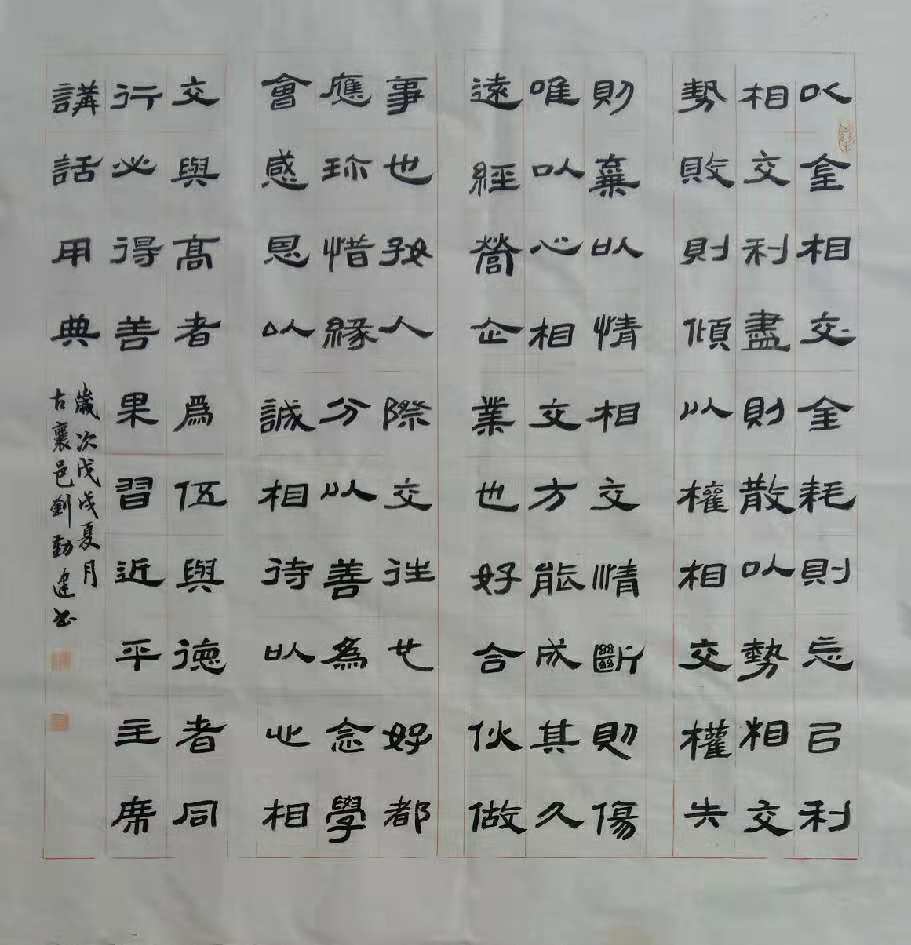 以金相交金耗則忘㠯利
相交利盡則散以勢相交
勢敗則傾以權相交權失
則棄以情相交情斷則傷
唯以心相交方能成其久
遠經營企業也好合伙做
事也好人際交往也好都
應珍惜緣分以善為念學
會感恩以誠相待以此相
交與高者為伍與德者同
行必得善果習近平主席
講話用典
歲次戊戌夏月
古襄邑劉建書